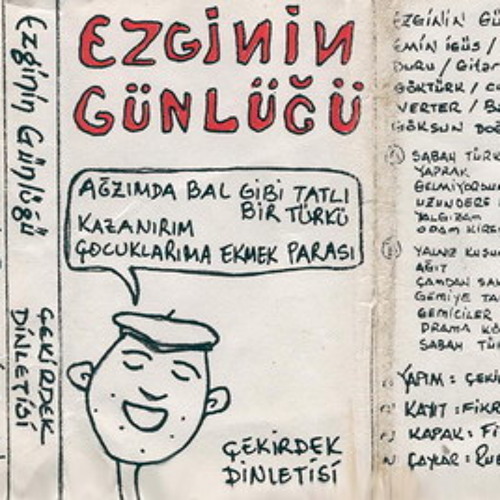 Ezginin Günlüğü
ÇEKİRDEK
DİNLETİSİ
EZGİNİN
GÜNLÜĞÜ
AĞZIMDA BAL GİBİ TATLI
BİR TÜRKÜ
KAZANIRIM
ÇOCUKLARIMA EKMEK PARASI
ÇEKİRDEK
DİNLETİSİ
EZGİNİN
EMİN İGÜS /
DURU / Gitar
GÖKTÜRK /
VERTER /
GÖKSUN
SABAH TÜRK
YAPRAK
GELMİYORSUN
UZUNDERE
YALGIZAM
ODAM KİREÇ
YALNIZ KUŞUN
AĞIT
ÇAMDAN SAK
GEMİYE
GEMİCİLER
DRAMA KÖ
SABAH TÜR
YAPIM : ÇEKİ
KAYIT : FİKR
KAPAK : Fİ
ÇAYLAR :